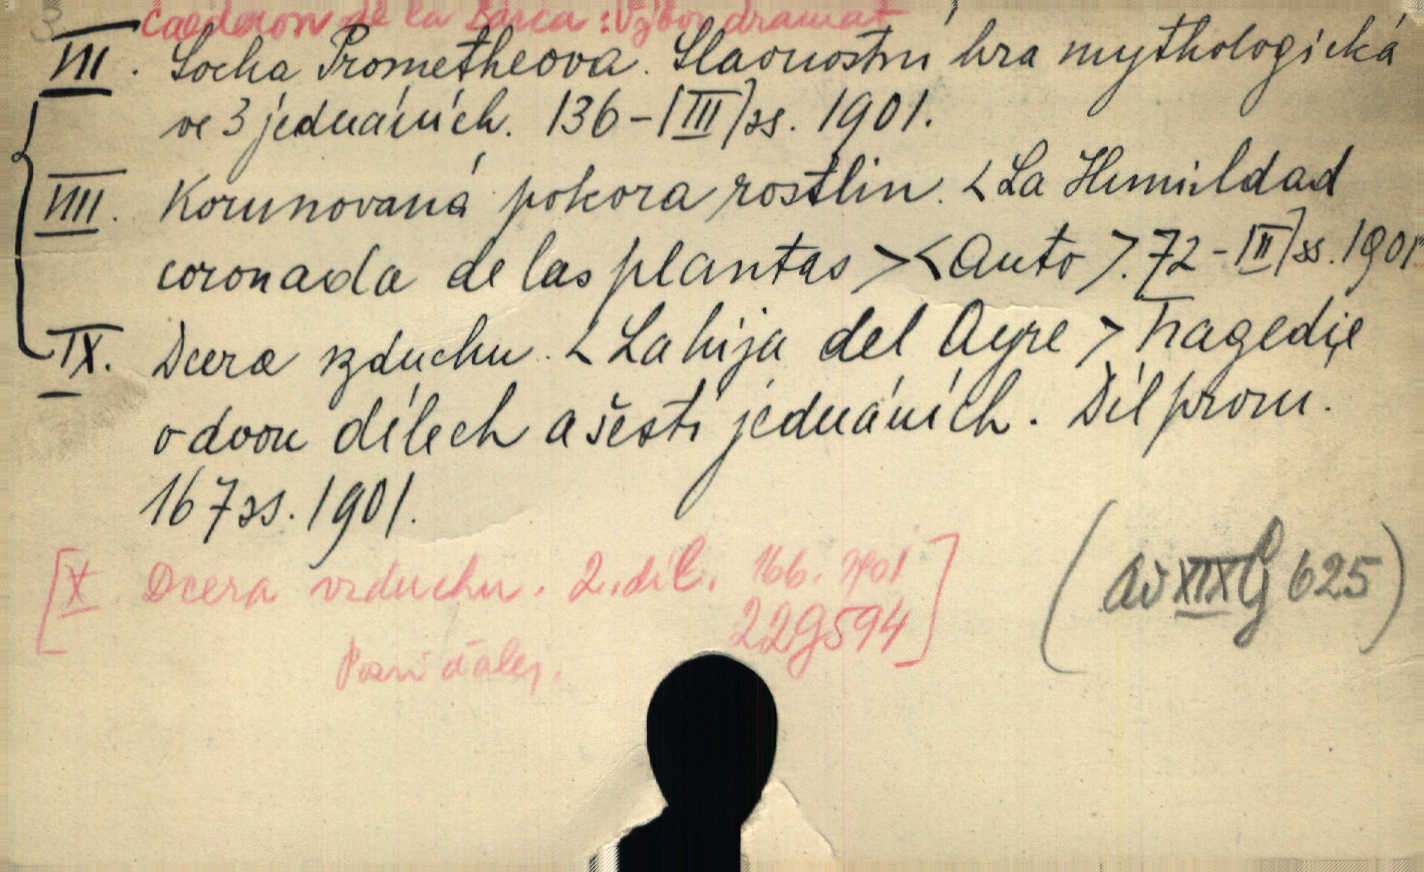 Calderon de la Barca: Výbor dramat
VII. Socha Prometheova. Slavnostní hra mythologická
ve 3 jednáních. 136-[III] ss. 1901.
VIII. Korunovaná pokora rostlin. <La Humildad
coronada de las plantas> <Auto>. 72-[II] ss. 1901
IX. Dcera vzduchu. <La hija del Ayre> Tragedie
o dvou dílech a šesti jednáních. Díl prvni.
167 ss. 1901.
[X. Dcera vzduchu. 2. díl. 166. 1901
22G594]
(XIX G 625)
dálej.